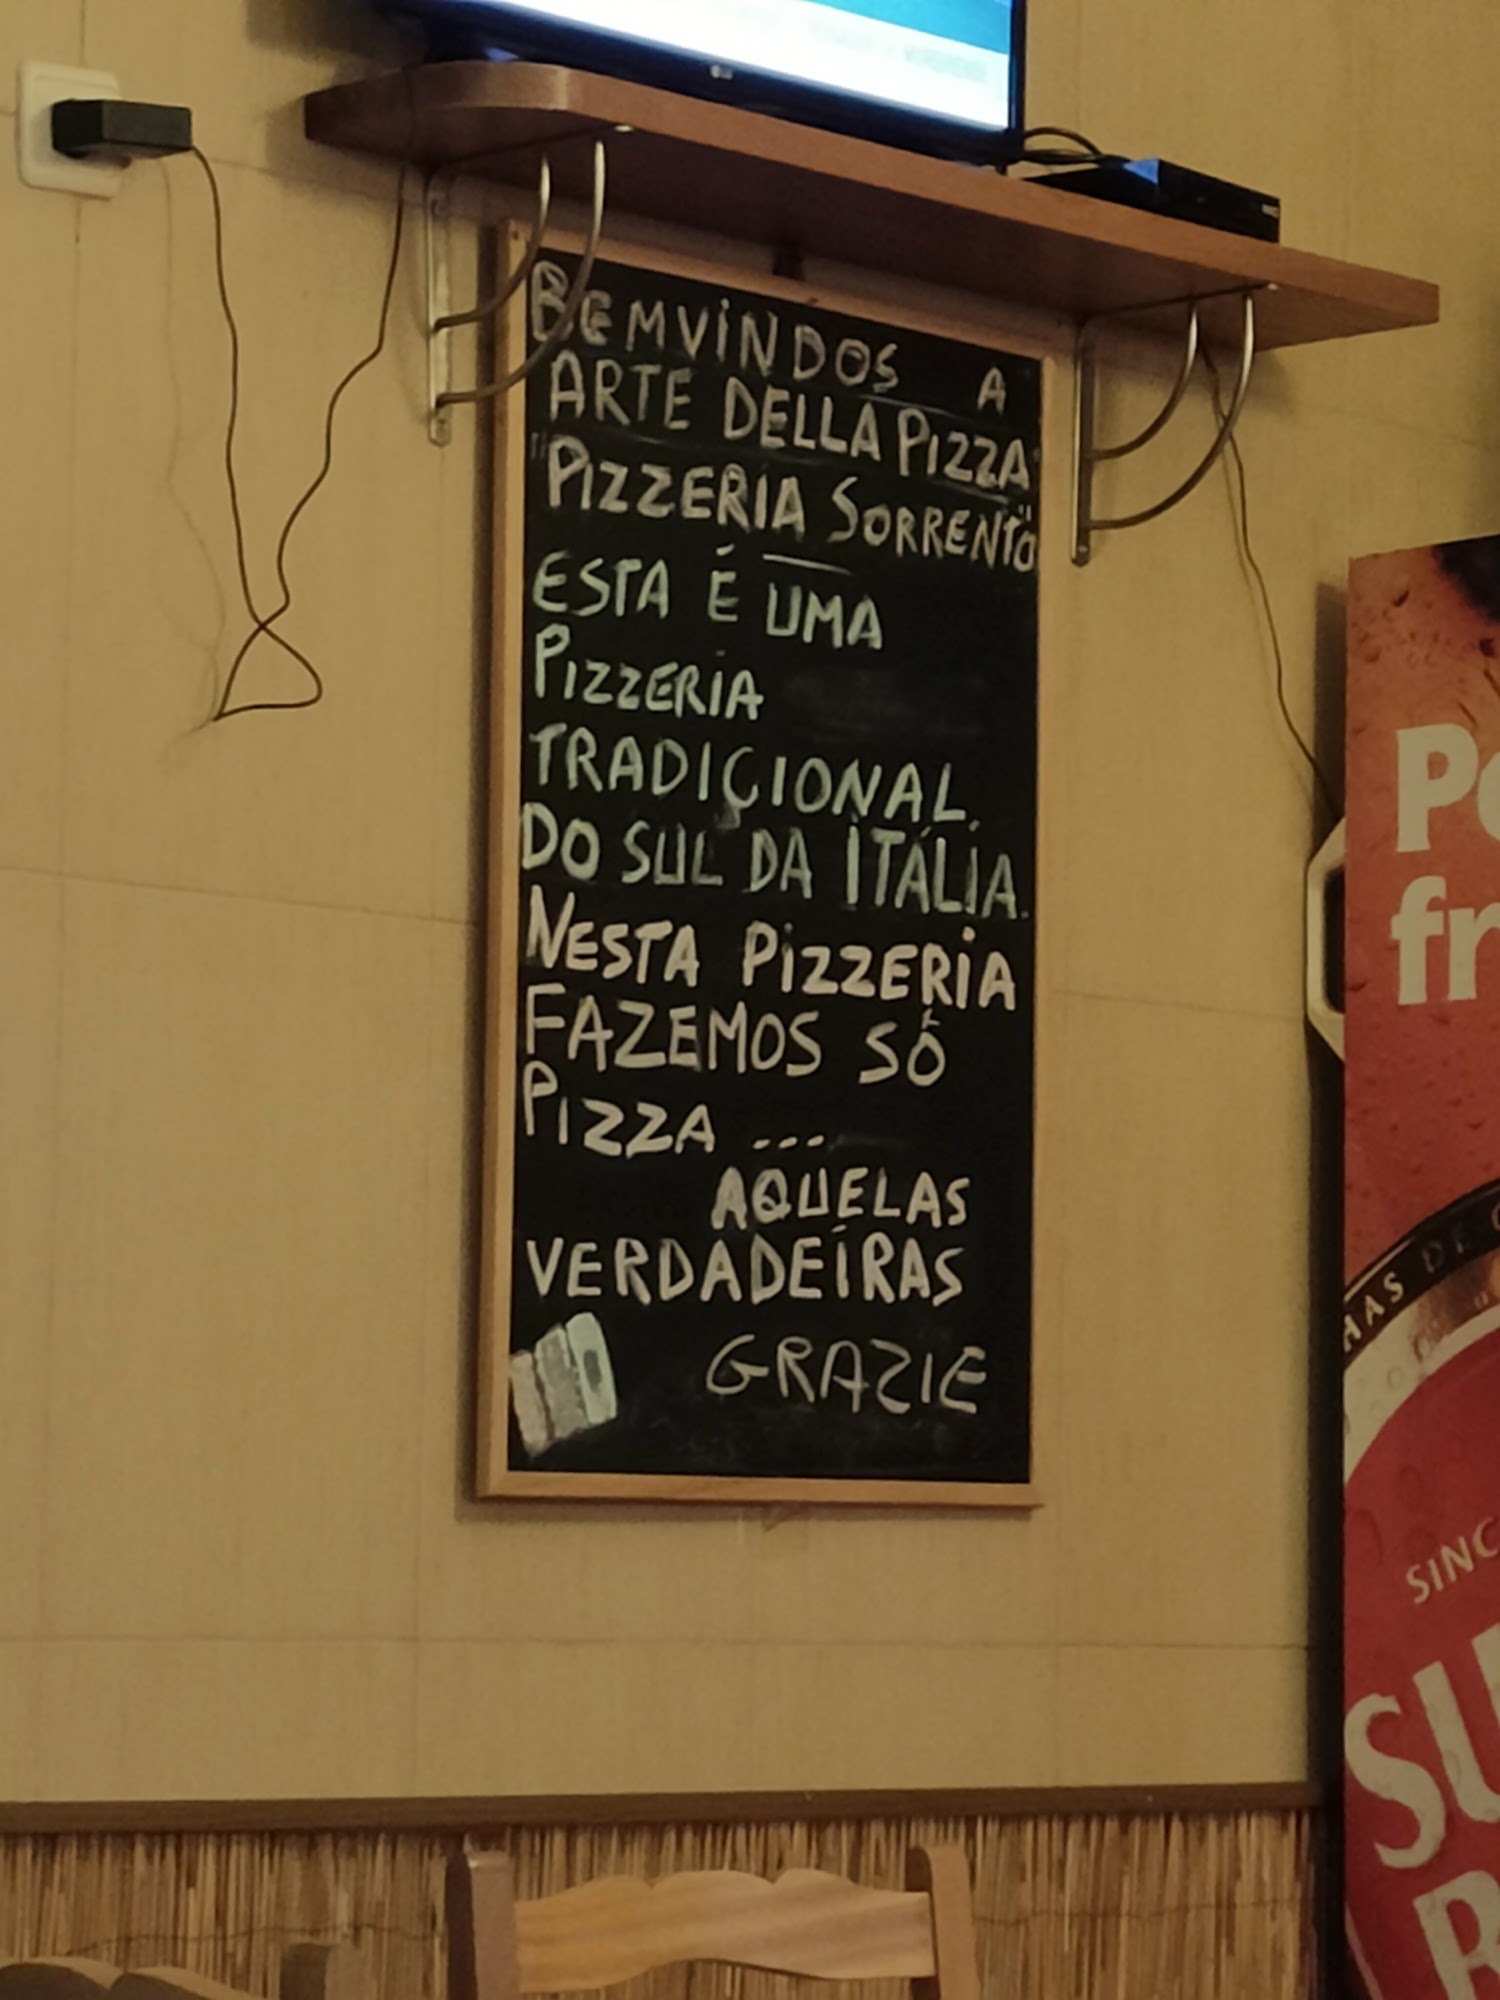 BEMVINDOS A
ARTE DELLA PIZZA
"PIZZERIA SORRENTO"
ESTA É UMA
PIZZERIA
TRADIÇIONAL
DO SUL DA ITÁLIA.
NESTA PIZZERIA
FAZEMOS SÓ
PIZZA ...
AQUELAS
VERDADEIRAS
GRAZIE
LG
SINC